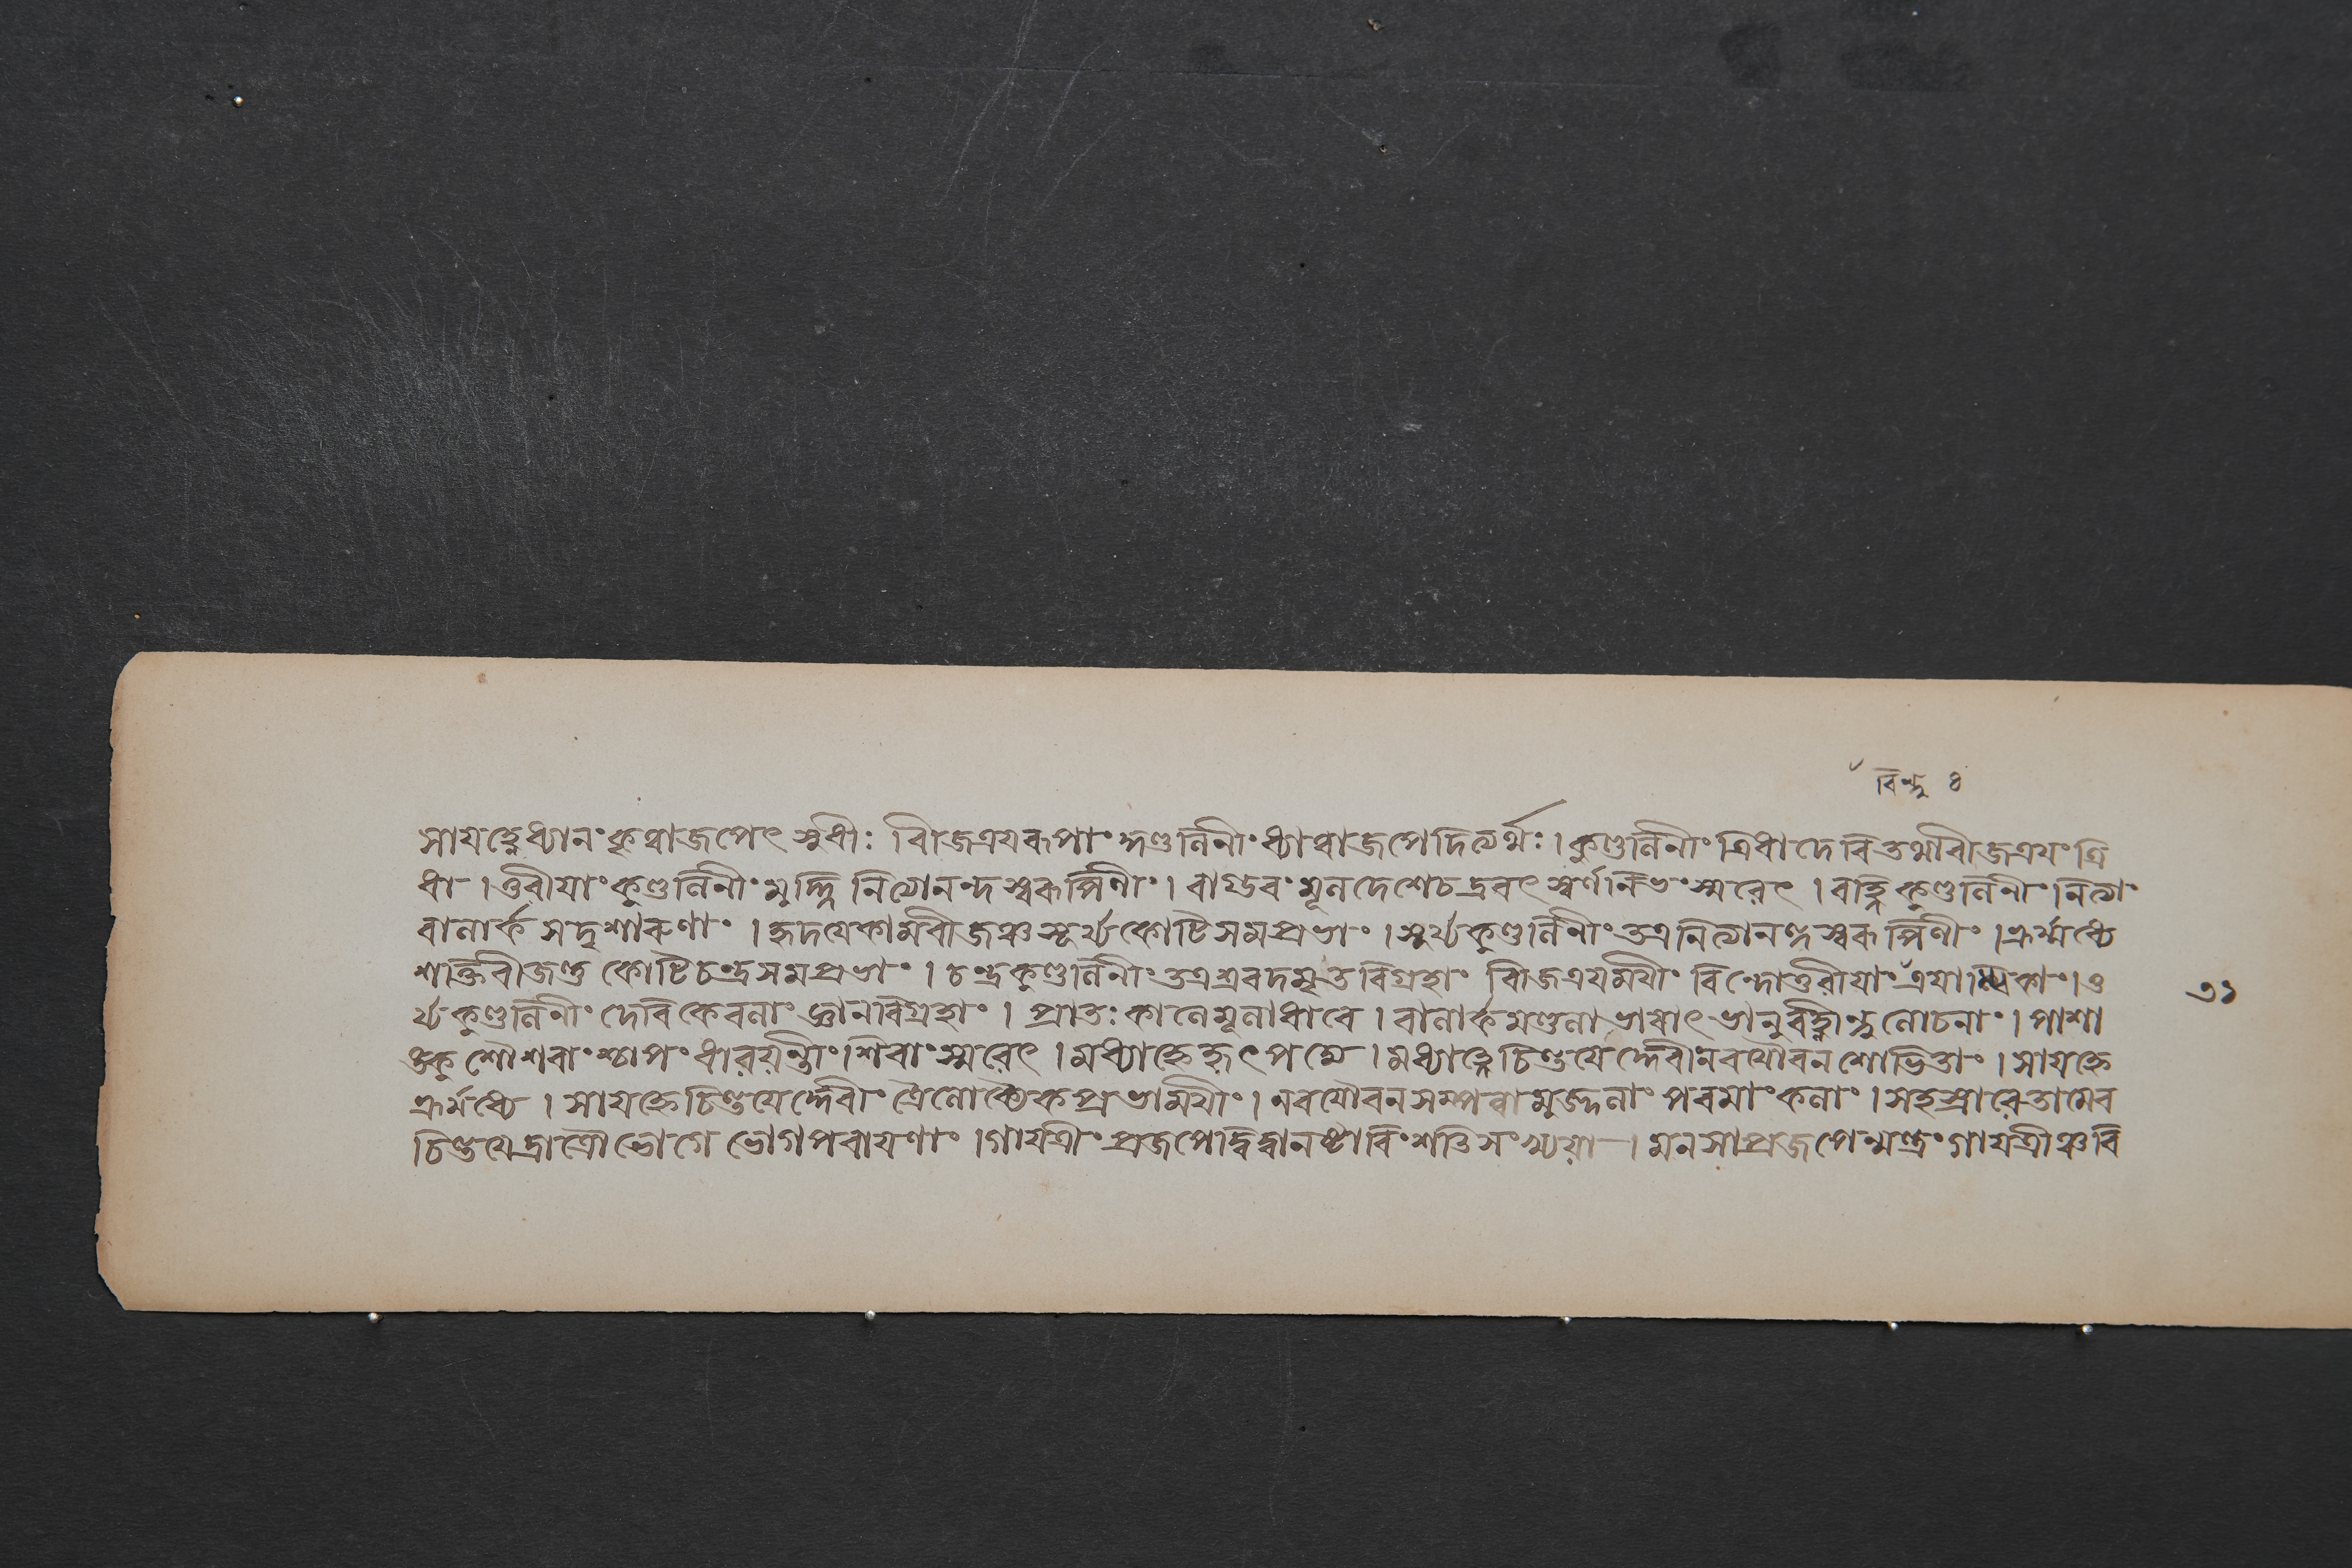 বিন্দু ৪
সাযহ্নেধ্যানং কৃত্বাজপেৎ সুধীঃ বীজত্রযৰূপাং কুণ্ডলিনীং ধ্যাত্বাজপেদিত্যর্থঃ। কুণ্ডলিনীং ত্রিধাদেবি তথাবীজত্রযং ত্রি
ধা । তুৰীযাং কুণ্ডলিনীং মুর্দ্ধ্নি নিত্যানন্দস্বৰূপিণীং । বাগ্ভবং মূলদেশেচ দ্রবৎ স্বর্ণনিভং স্মৰেৎ । বহ্নিকুণ্ডলিনীং নিত্যাং
বালার্ক সদৃশাৰুণাং । হৃদযেকামবীজঞ্চ সূর্য্যকোটিসমপ্রভাং । সূর্য্যকুণ্ডলিনীং তত্রনিত্যানন্দস্বৰূপিণীং । ভ্রূর্মধ্যে
শক্তিবীজন্তু কোটিচন্দ্রসমপ্রভাং । চন্দ্রকুণ্ডলিনীং তত্রশ্রবদমৃতবিগ্রহাং বীজত্রযমযীং বিন্দোতুৰীযাং ত্রযাত্মিকাং । ত
র্য্যকুণ্ডলিনীং দেবি কেবলাং জ্ঞানবিগ্রহাং । প্রাতঃ কালে মূলাধাৰে । বালার্কমণ্ডলাভাষাং ভানুবহ্নীন্দুলোচনাং । পাশা
ঙ্কুশৌশৰাংশ্চাপং ধাৰযন্তীং শিবাং স্মৰেৎ । মধ্যাহ্নে হৃৎপদ্মে । মধ্যাহ্নে চিন্তযের্দ্দেবীং নবযৌবনশোভিতাং । সাযহ্নে
ভ্রূর্মধ্যে । সাযহ্নে চিন্তযের্দ্দেবীং ত্রৈলোক্যৈকপ্রভামযীং । নবযৌবনসম্পন্নামুজ্জ্বলাং পৰমাং কলাং । সহস্রাৰে তামেব
চিন্তযেদ্রাত্রৌ ভোগে ভোগপৰাযণাং । গাযত্রীং প্রজপেদ্বিদ্বানষ্টাবিংশতিসংখ্যযা । মনসাপ্রজপেন্মন্ত্রং গাযত্রীঞ্চবি
৩১